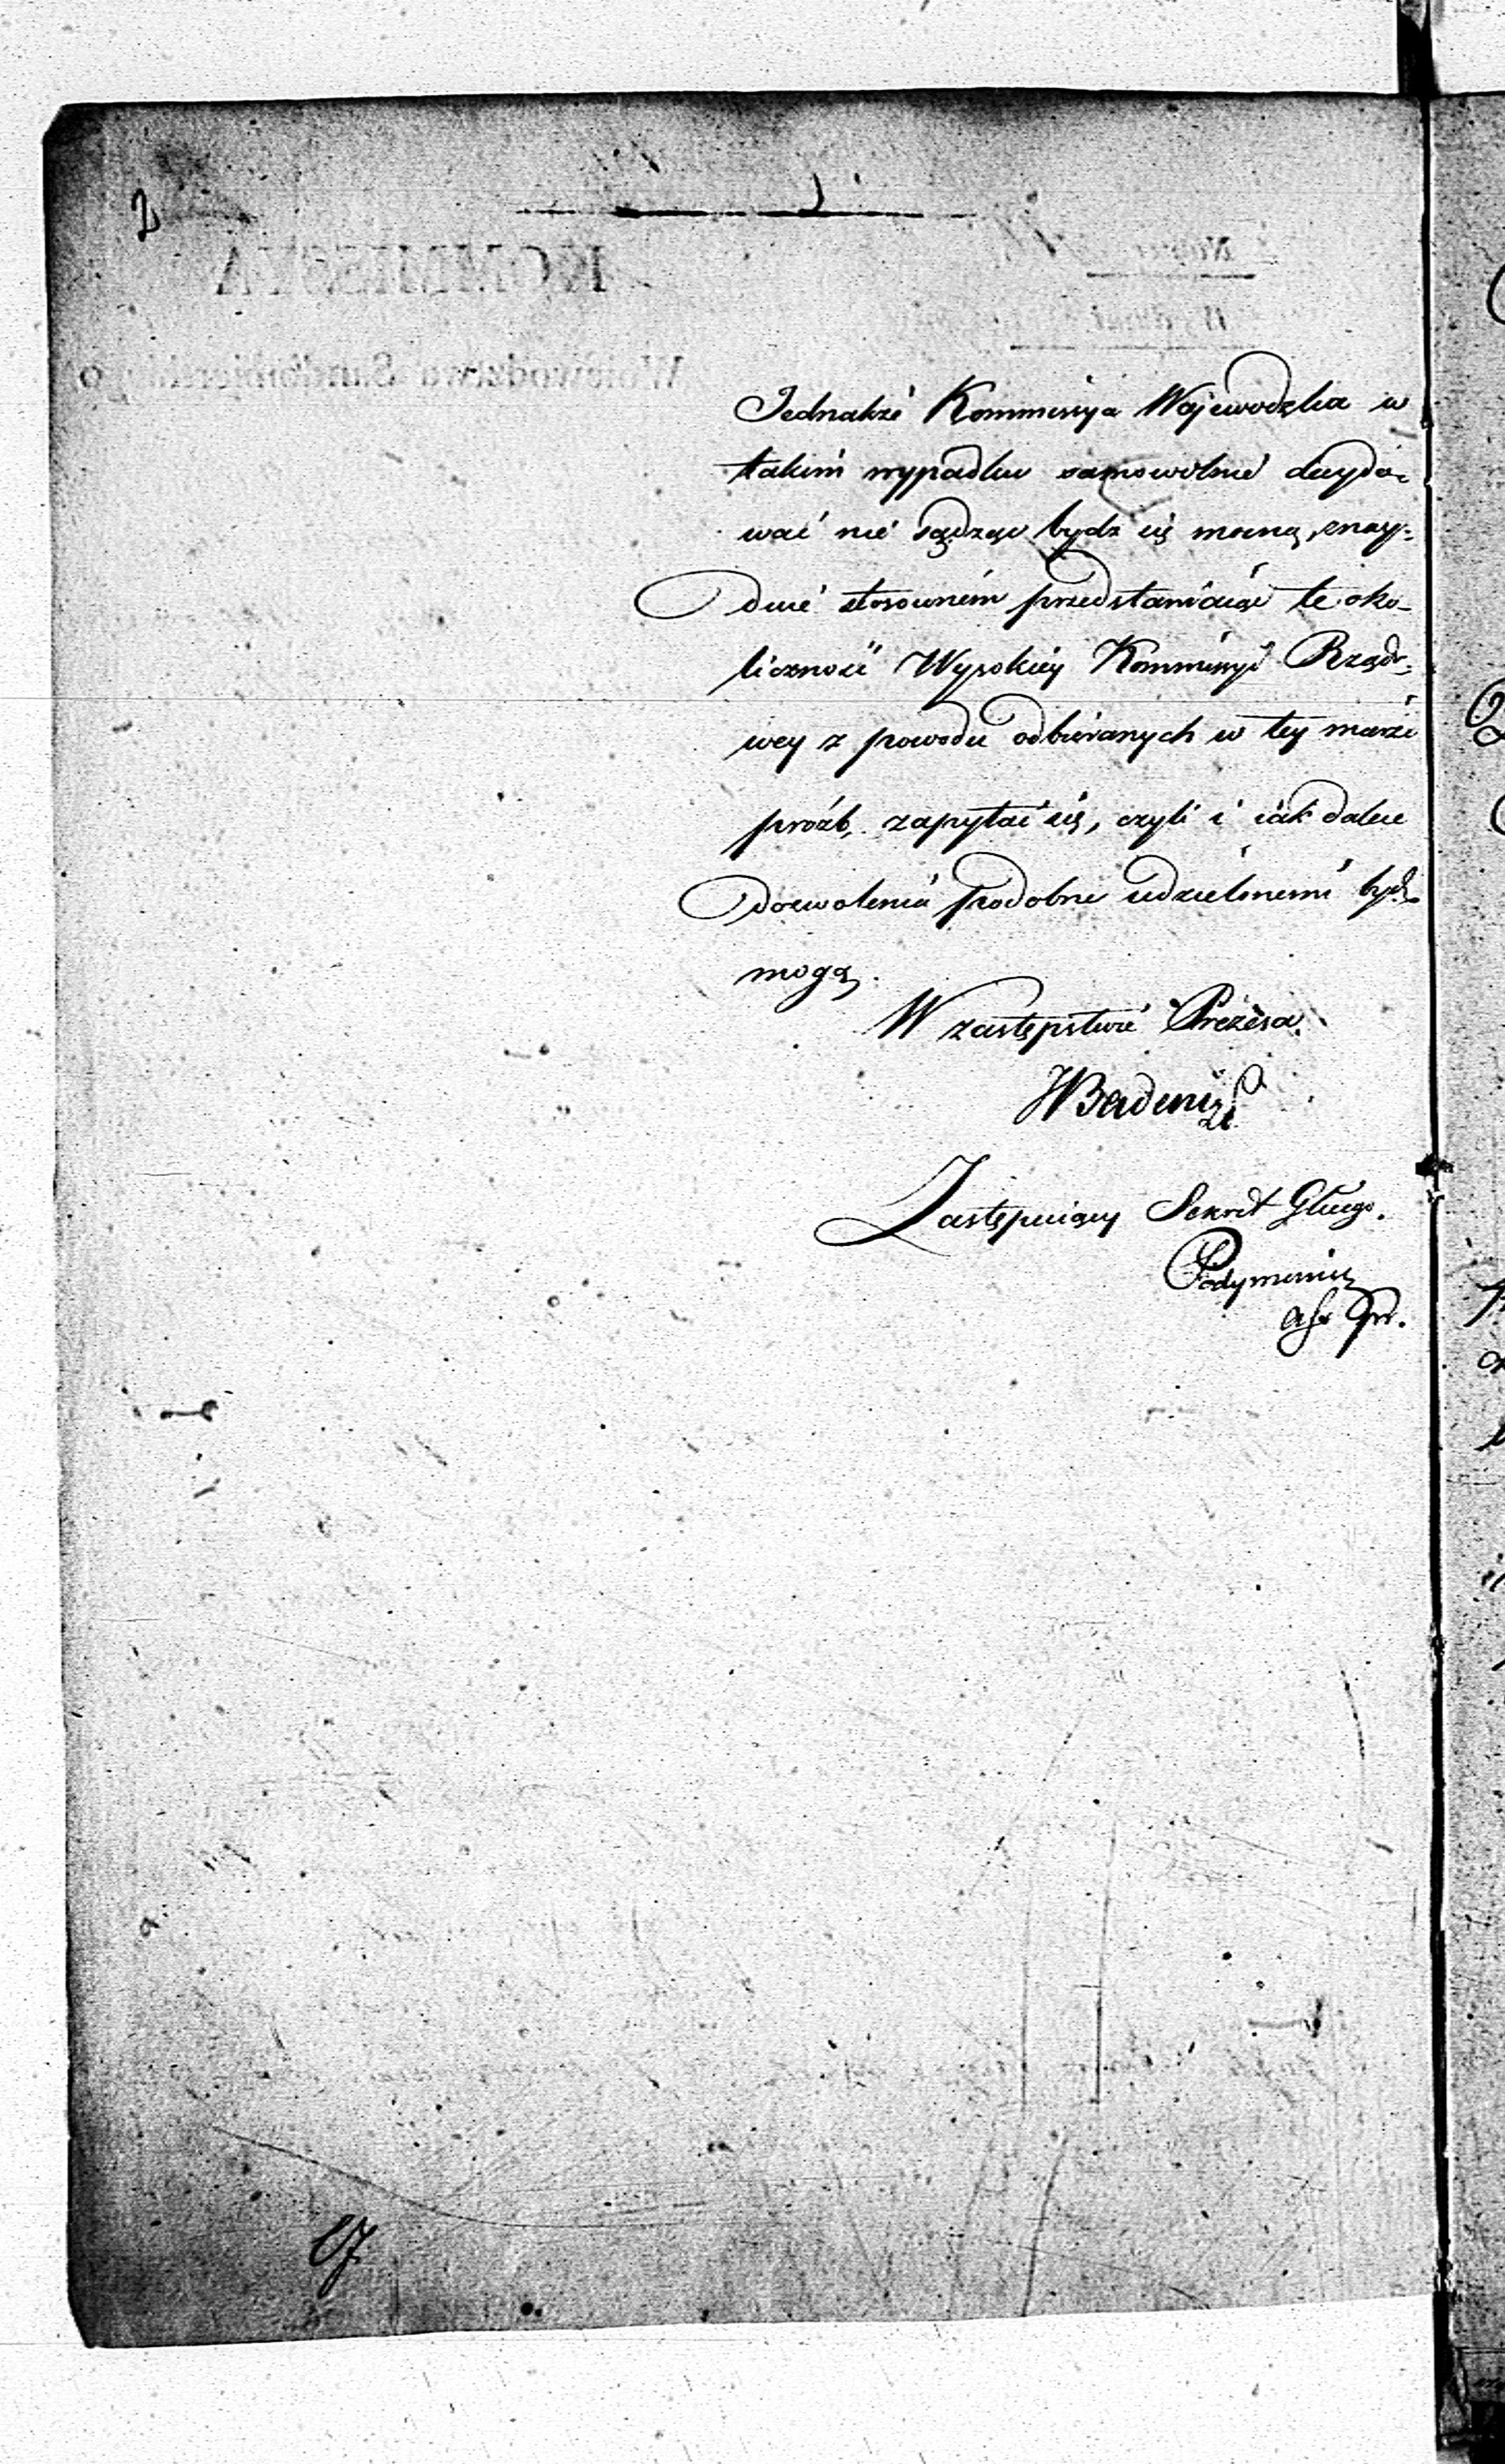 2
Jednakże Kommissya Wojewodzka w
takim wypadku samowolnie decydo-
wać nie sądząc bydź się mocną, znay-
duie stosownem przedstawiaiąc te oko-
liczności Wysokiey Kommissyi Rządo-
wey z powodu odbieranych w tey mierze
próźb, zapytać się, czyli i iak dalece
dozwolenia podobne udzielonemi bydź
mogą.
W zastępstwie Prezesa.
Badeni
Zastępuiący Sekret Głnego.